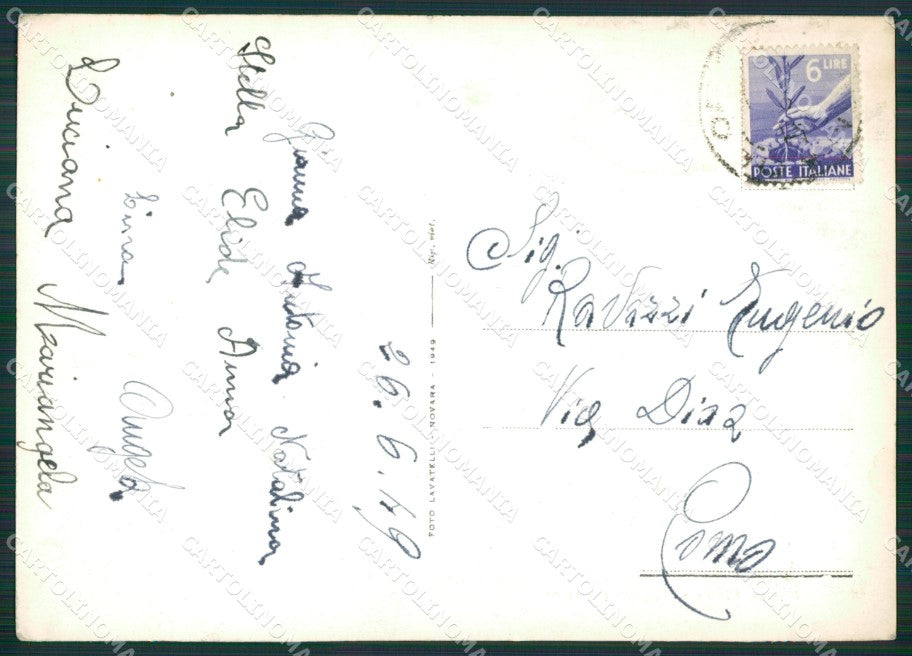 26.6.49
Gianna Antonia Natalina
Stella Elide Anna
Lina Angela
Luciana Mariangela
FOTO LAVATELLI - NOVARA - 1949 Rip. viet.
6 LIRE
POSTE ITALIANE
Sig.
Ravizzi Eugenio
Via Diaz
Como
CARTOLINOMANIA